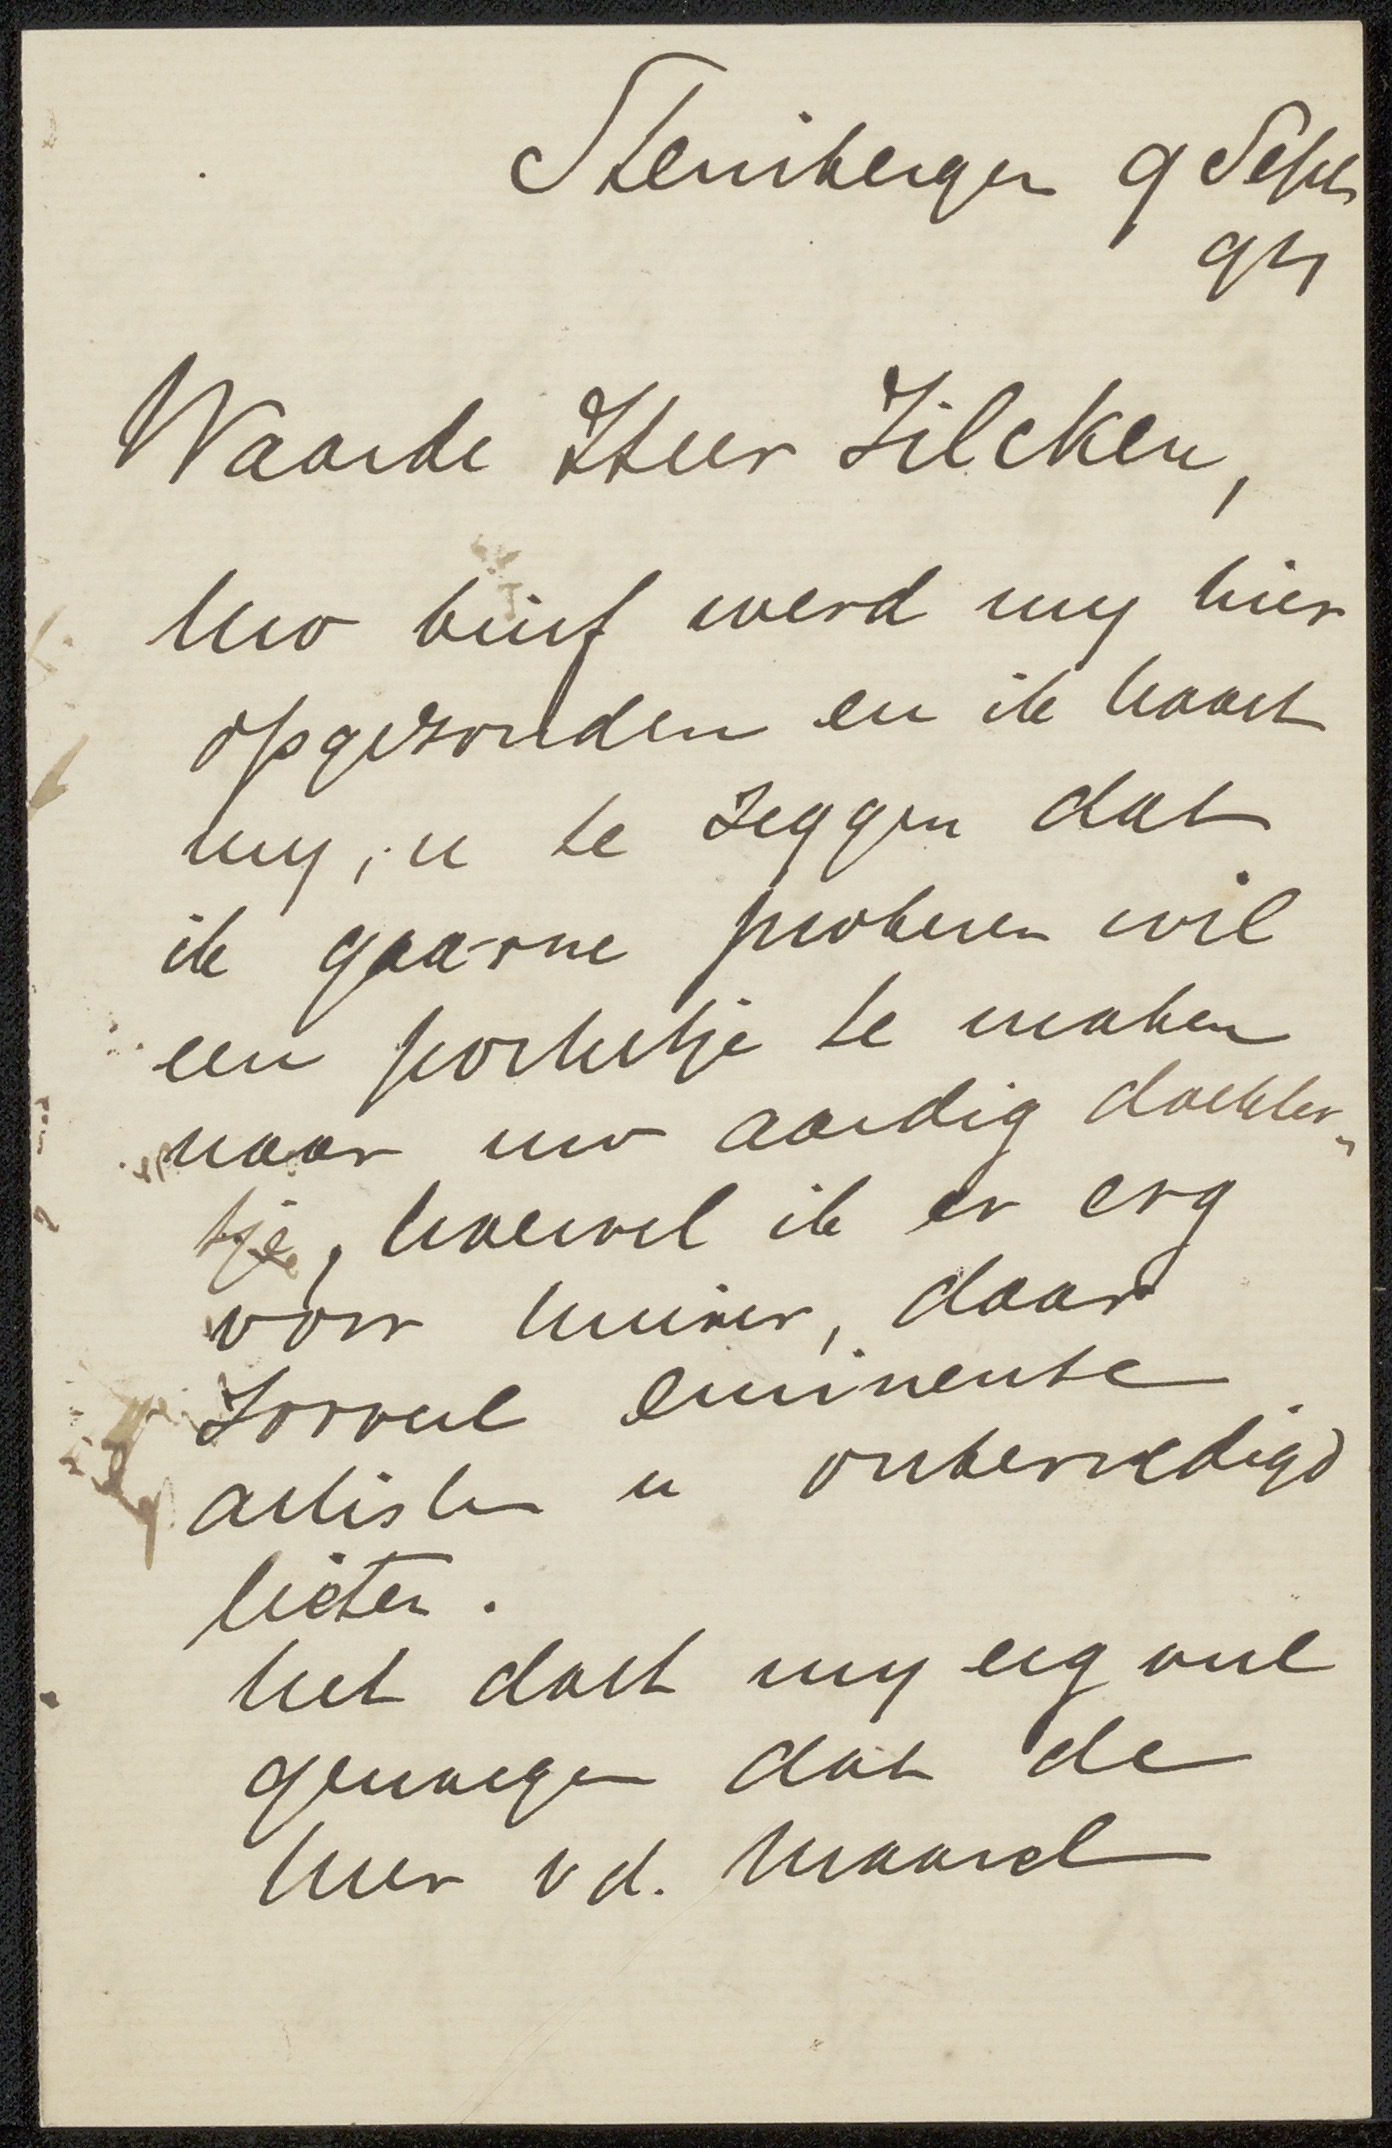 Steenbergen 9 Sept
94
Waarde Heer Zilcken,
Uw brief werd my hier
opgezonden en ik haast
my, u te zeggen dat
ik gaarne proberen wil
een portretje te maken
naar uw aardig dochter„
tje, hoewel ik er erg
voor huiver, daar
zooveel eminente
artisten u onbevredigd
lieten.
het doet my erg veel
genoegen dat de
heer v d. Maarel